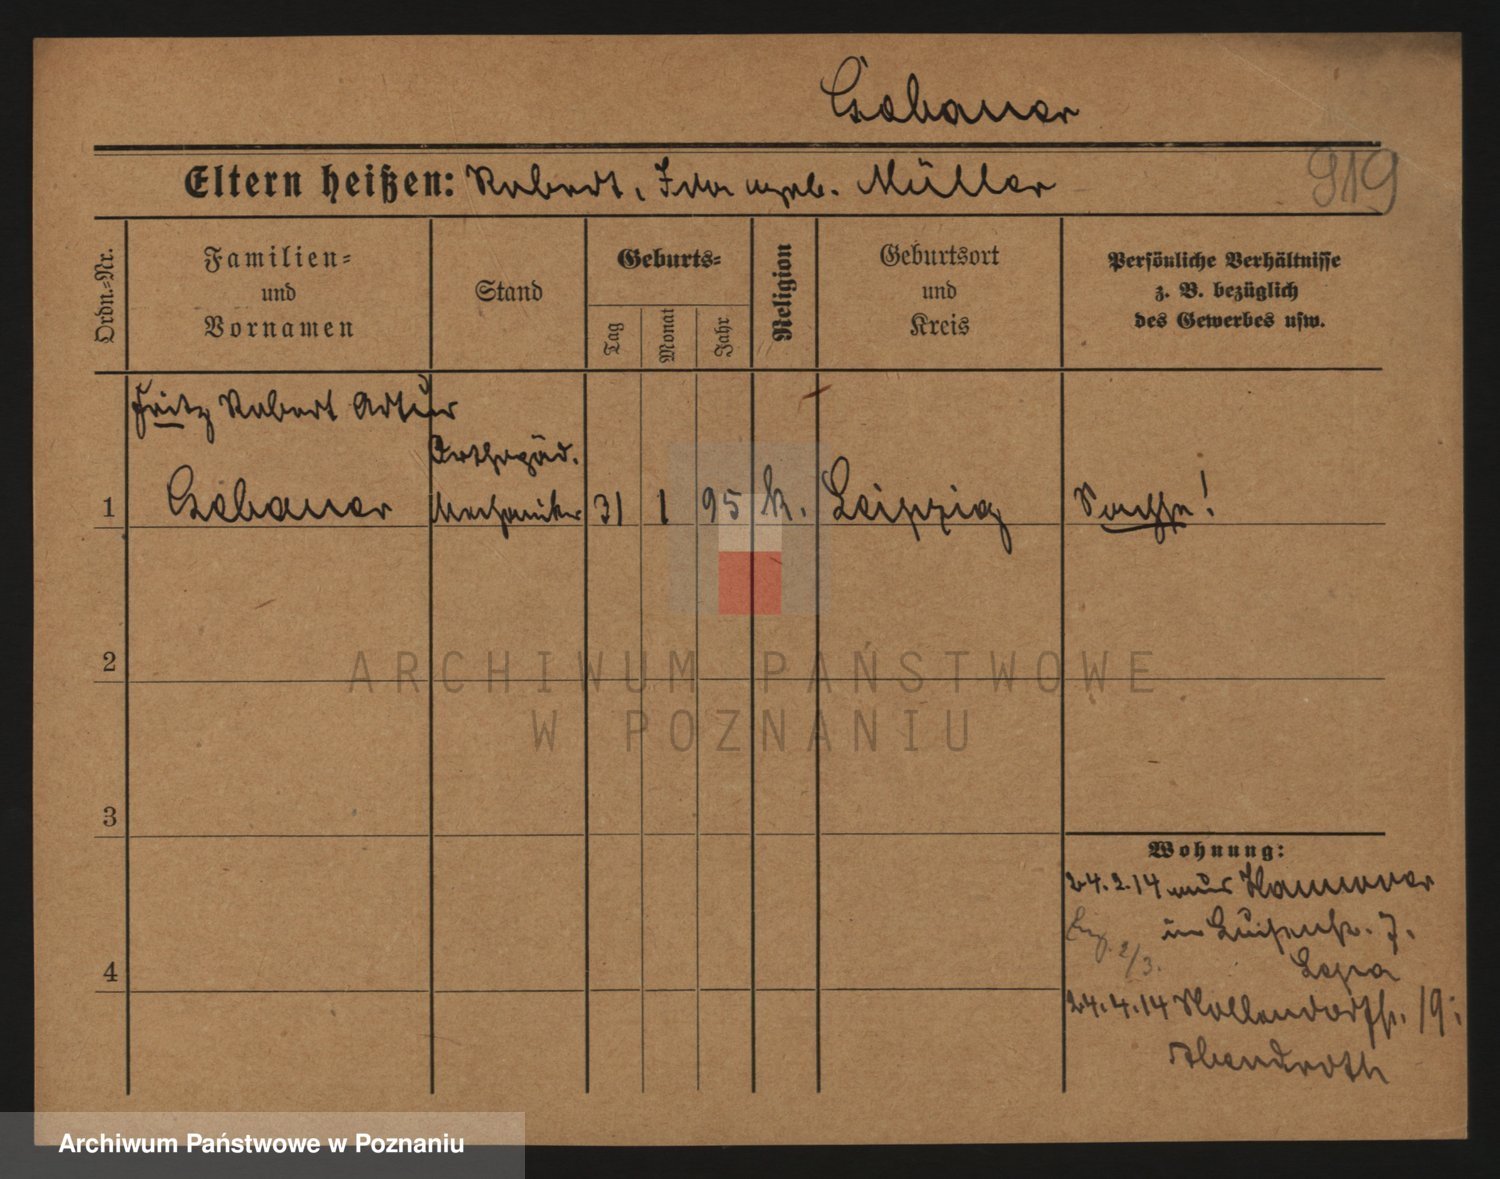 Gebauer
919
Eltern heißen: Robert, Ida geb. Müller
Ordn.-Nr.
Familien-
und
Vornamen
Stand
Geburts-
Tag
Monat
Jahr
Religion
Geburtsort
und
Kreis
Persönliche Verhältnisse
z. B. bezüglich
des Gewerbes usw.
Fritz Robert Artur
Orthopäd.
1 Gebauer Mechaniker 31 1 95 k. Leipzig Sachse!
2
3
Wohnung:
24.2.14 aus Hannover
in Luisenstr. 7.
2/3.
4
24.4.14 Kollendorfstr. 19:
Abendroth
ARCHIWUM PAŃSTWOWE
W POZNANIU
Archiwum Państwowe w Poznaniu